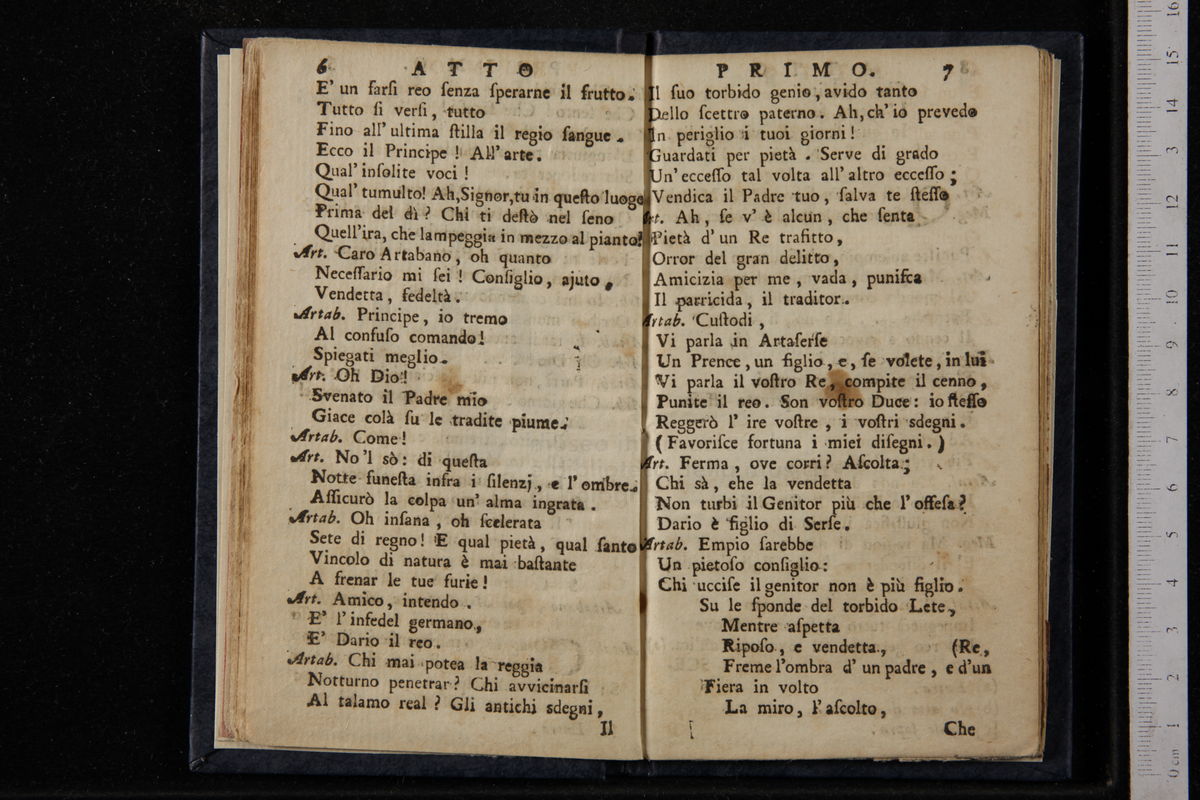 6 ATTO
E' un farſi reo ſenza ſperarne il frutto.
Tutto ſi verſi, tutto
Fino all' ultima ſtilla il regio ſangue.
Ecco il Principe! All' arte.
Qual' inſolite voci!
Qual' tumulto! Ah, Signor, tu in queſto luogo
Prima del dì? Chi ti deſtò nel ſeno
Quell' ira, che lampeggia in mezzo al pianto?
Art. Caro Artabano, oh quanto
Neceſſario mi ſei! Conſiglio, ajuto,
Vendetta, fedeltà.
Artab. Principe, io tremo
Al confuſo comando!
Spiegati meglio.
Art. Oh Dio!
Svenato il Padre mio
Giace colà ſu le tradite piume.
Artab. Come!
Art. No'l sò: di queſta
Notte funeſta infra i ſilenzj, e l' ombre.
Aſſicurò la colpa un' alma ingrata.
Artab. Oh inſana, oh ſcelerata
Sete di regno! E qual pietà, qual ſanto
Vincolo di natura è mai baſtante
A frenar le tue furie!
Art. Amico, intendo.
E' l' infedel germano,
E' Dario il reo.
Artab. Chi mai potea la reggia
Notturno penetrar? Chi avvicinarſi
Al talamo real? Gli antichi sdegni,
Il
PRIMO. 7
Il ſuo torbido genio, avido tanto
Dello ſcettro paterno. Ah, ch' io prevedo
In periglio i tuoi giorni!
Guardati per pietà. Serve di grado
Un' ecceſſo tal volta all' altro ecceſſo;
Vendica il Padre tuo, ſalva te ſteſſo
Art. Ah, ſe v' è alcun, che ſenta
Pietà d' un Re trafitto,
Orror del gran delitto,
Amicizia per me, vada, puniſca
Il parricida, il traditor.
Artab. Cuſtodi,
Vi parla in Artaſerſe
Un Prence, un figlio, e, ſe volete, in lui
Vi parla il voſtro Re, compite il cenno,
Punite il reo. Son voſtro Duce: io ſteſſo
Reggerò l' ire voſtre, i voſtri sdegni.
(Favoriſce fortuna i miei diſegni.)
Art. Ferma, ove corri? Aſcolta;
Chi sà, ehe la vendetta
Non turbi il Genitor più che l' offeſa?
Dario è figlio di Serſe.
Artab. Empio ſarebbe
Un pietoſo conſiglio:
Chi ucciſe il genitor non è più figlio.
Su le ſponde del torbido Lete,
Mentre aſpetta
Ripoſo, e vendetta, (Re,
Freme l'ombra d' un padre, e d'un
Fiera in volto
La miro, l' aſcolto,
Che
0 cm 1 2 3 4 5 6 7 8 9 10 11 12 3 14 15 16